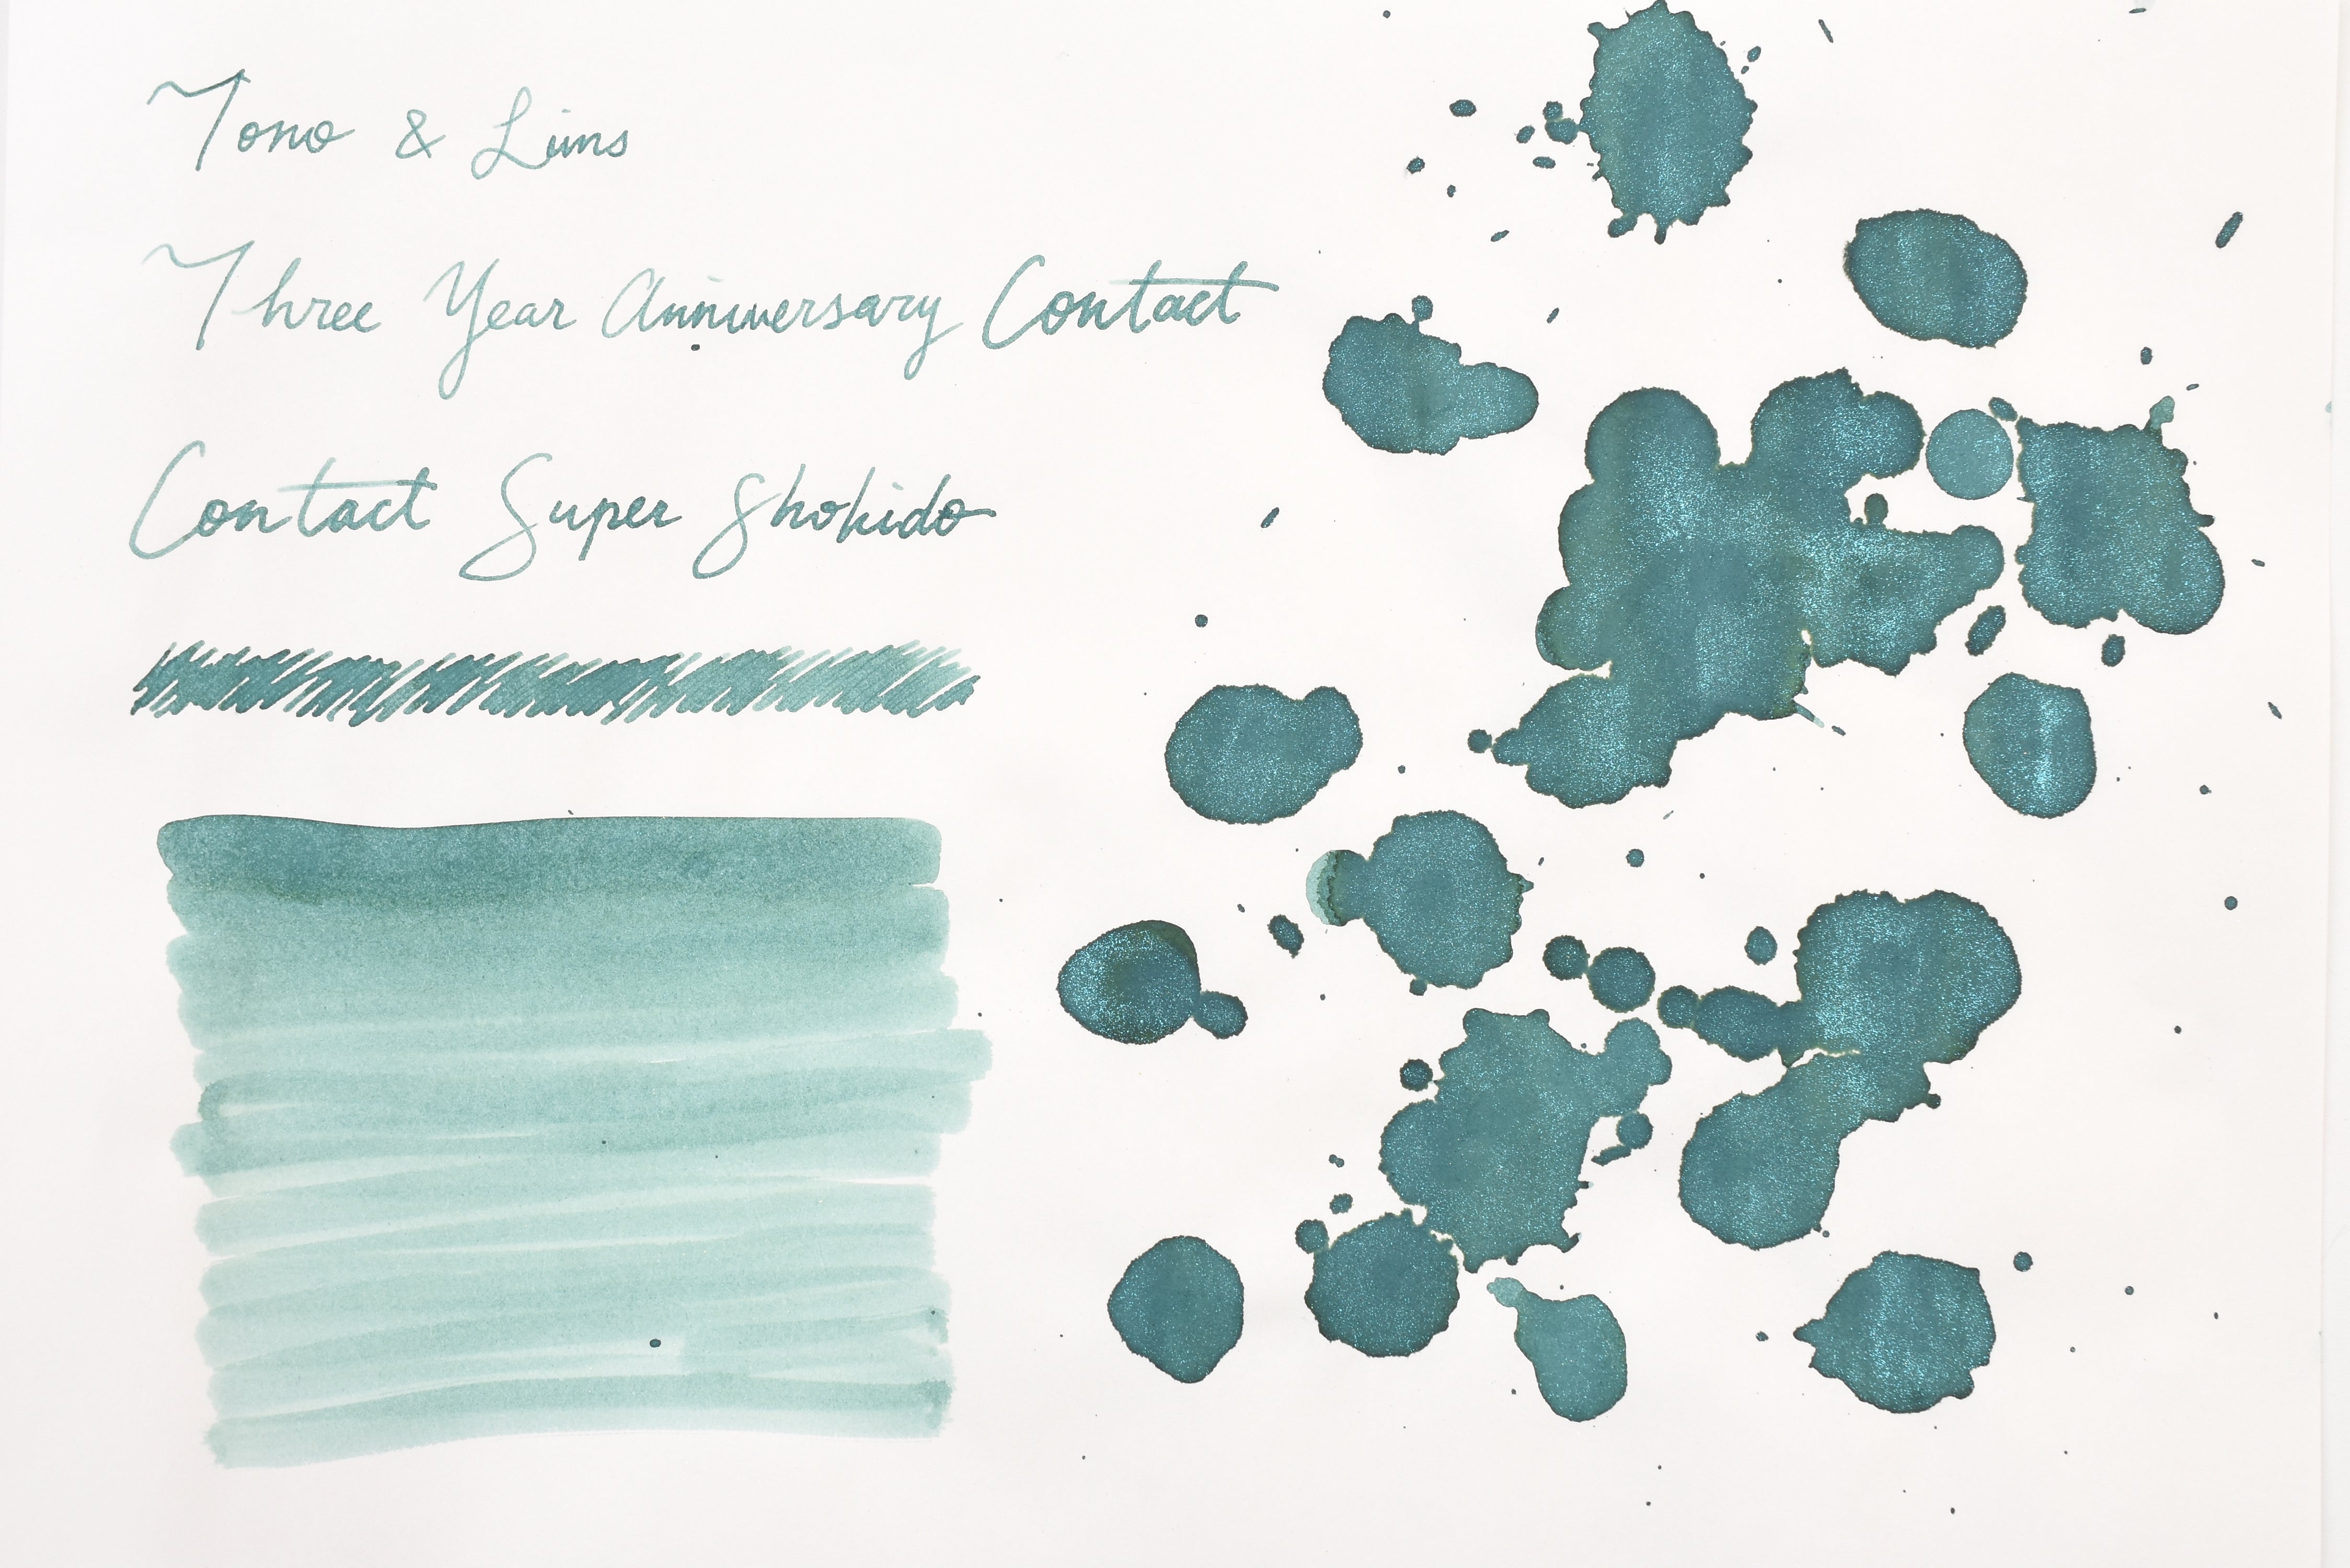 Tono & Lims
Three Year Anniversary Contact
Contact Super Shokido